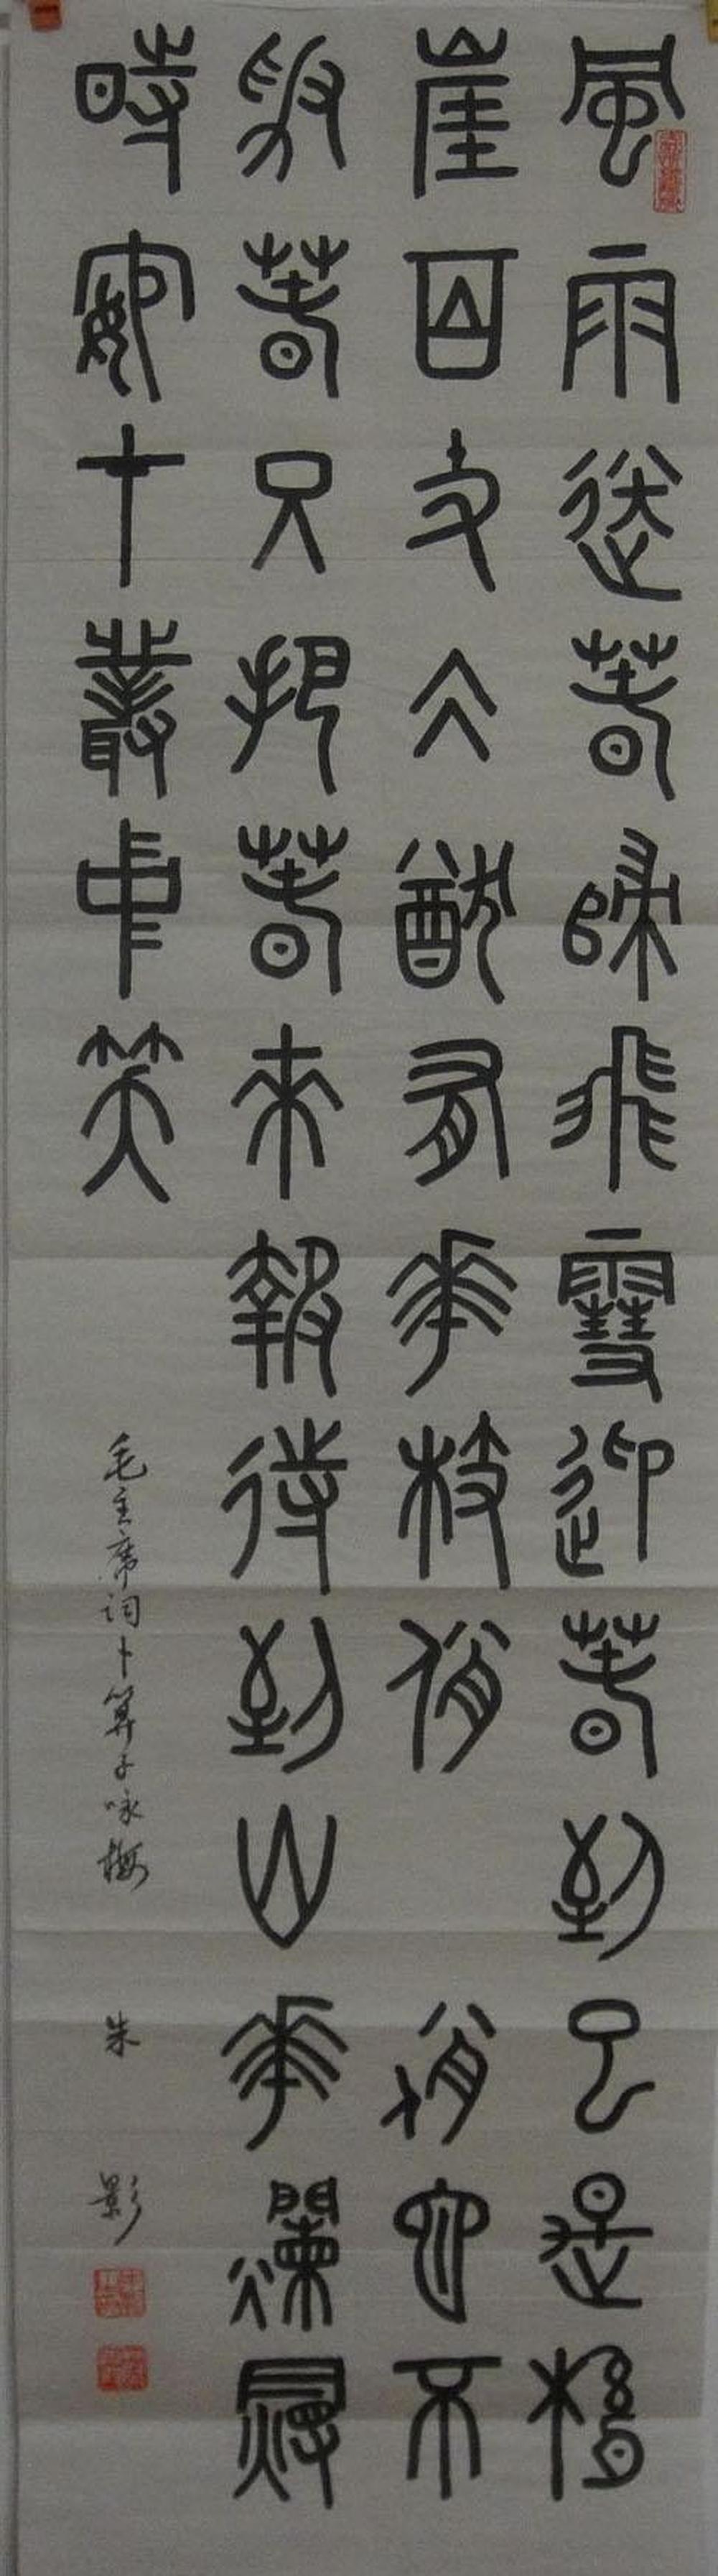 風雨送春歸飛雪迎春到已是懸
崖百丈冰猶有花枝俏 俏也不
爭春只把春來報待到山花爛漫
時她在叢中笑
毛主席词卜算子咏梅 朱影